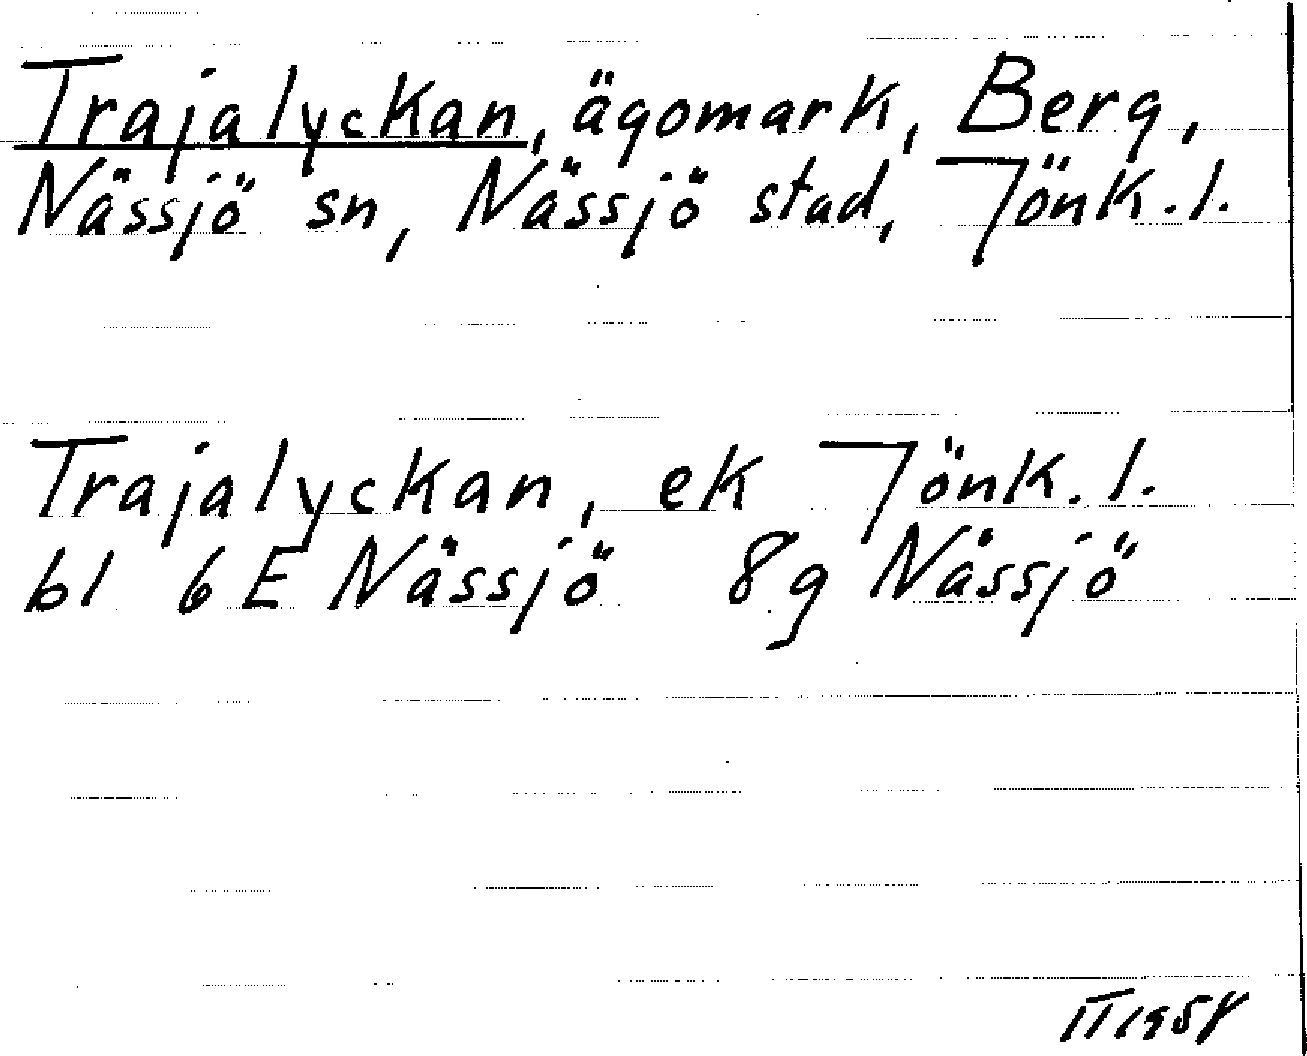 Trajalyckan, ägomark, Berg,
Nässjö sn, Nässjö stad, Jönk.l.
Trajalyckan, ek Jönk.l.
bl 6E Nässjö 8g Nässjö